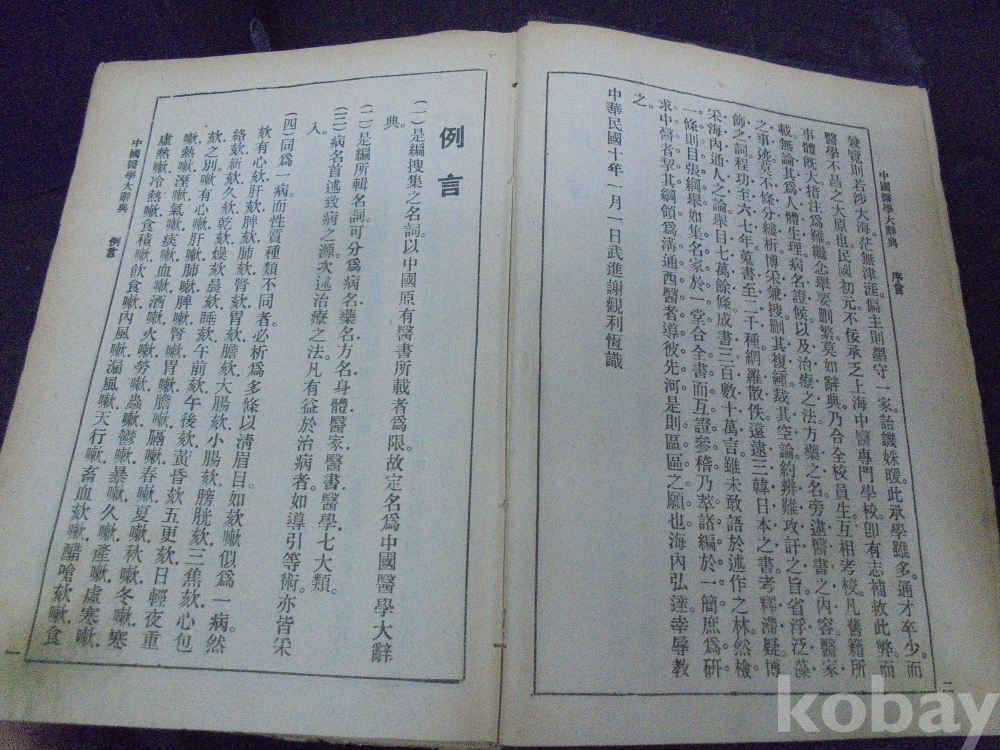 中國醫學大辭典 序言
兼覽則若涉大海茫無津涯偏主則墨守一家詒譏姝暖此承學雖多通才卒少而
醫學不昌之大原也民國初元不佞承之上海中醫專門學校卽有志補救此弊而
事體旣大措注爲難繼念舉要刪繁莫如辭典乃合全校員生互相考校凡舊籍所
載無論其爲人體生理病名證候以及治療之法方藥之名旁逮醫書之內容醫家
之事迹莫不條分縷析博采兼搜刪其複緟裁其空論約辨難攻訐之旨省浮泛藻
飾之詞程功至六七年蒐書至二千種網羅散佚遠逮三韓日本之書考釋滯疑博
采海內通人之論舉目七萬餘條成書三百數十萬言雖未敢語於述作之林然檢
一條則目張綱舉如集名家於一堂合全書而互證參稽乃萃諸編於一簡庶爲硏
求中醫者挈其綱領爲溝通西醫者導彼先河是則區區之願也海內弘達幸辱教
之。
中華民國十年一月一日武進謝觀利恆識
二
例言
(一)是編搜集之名詞以中國原有醫書所載者爲限故定名爲中國醫學大辭
典。
(二)是編所輯名詞可分爲病名藥名方名身體醫家醫書醫學七大類。
(三)病名首述致病之源次述治療之法凡有益於治病者如導引等術亦皆采
入。
(四)同爲一病而性質種類不同者必析爲多條以淸眉目如欬嗽似爲一病然
欬有心欬肝欬脾欬肺欬腎欬胃欬膽欬大腸欬小腸欬膀胱欬三焦欬心包
絡欬新欬久欬乾欬燥欬晨欬睡欬午前欬午後欬黃昏欬五更欬日輕夜重
欬之別嗽有心嗽肝嗽肺嗽脾嗽腎嗽胃嗽膽嗽膈嗽春嗽夏嗽秋嗽冬嗽寒
嗽熱嗽溼嗽氣嗽痰嗽血嗽酒嗽火嗽勞嗽蟲嗽鬱嗽暴嗽久嗽產嗽虛寒嗽
虛熱嗽冷熱嗽食積嗽飮食嗽內風嗽漏風嗽天行嗽畜血欬嗽醋嗆欬嗽食
中國醫學大辭典 例言
kobay